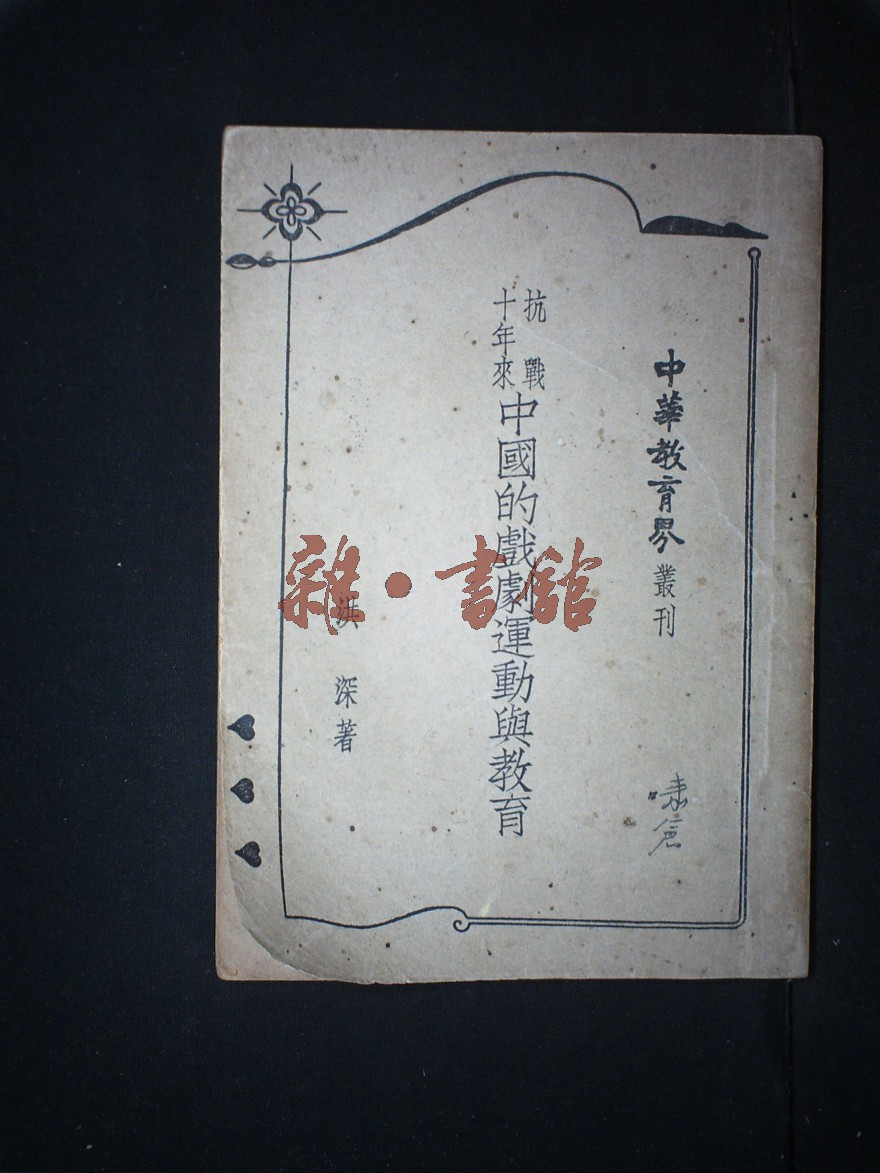 中華教育界叢刊
抗戰
十年來中國的戲劇運動與教育
洪深著
雜·書館